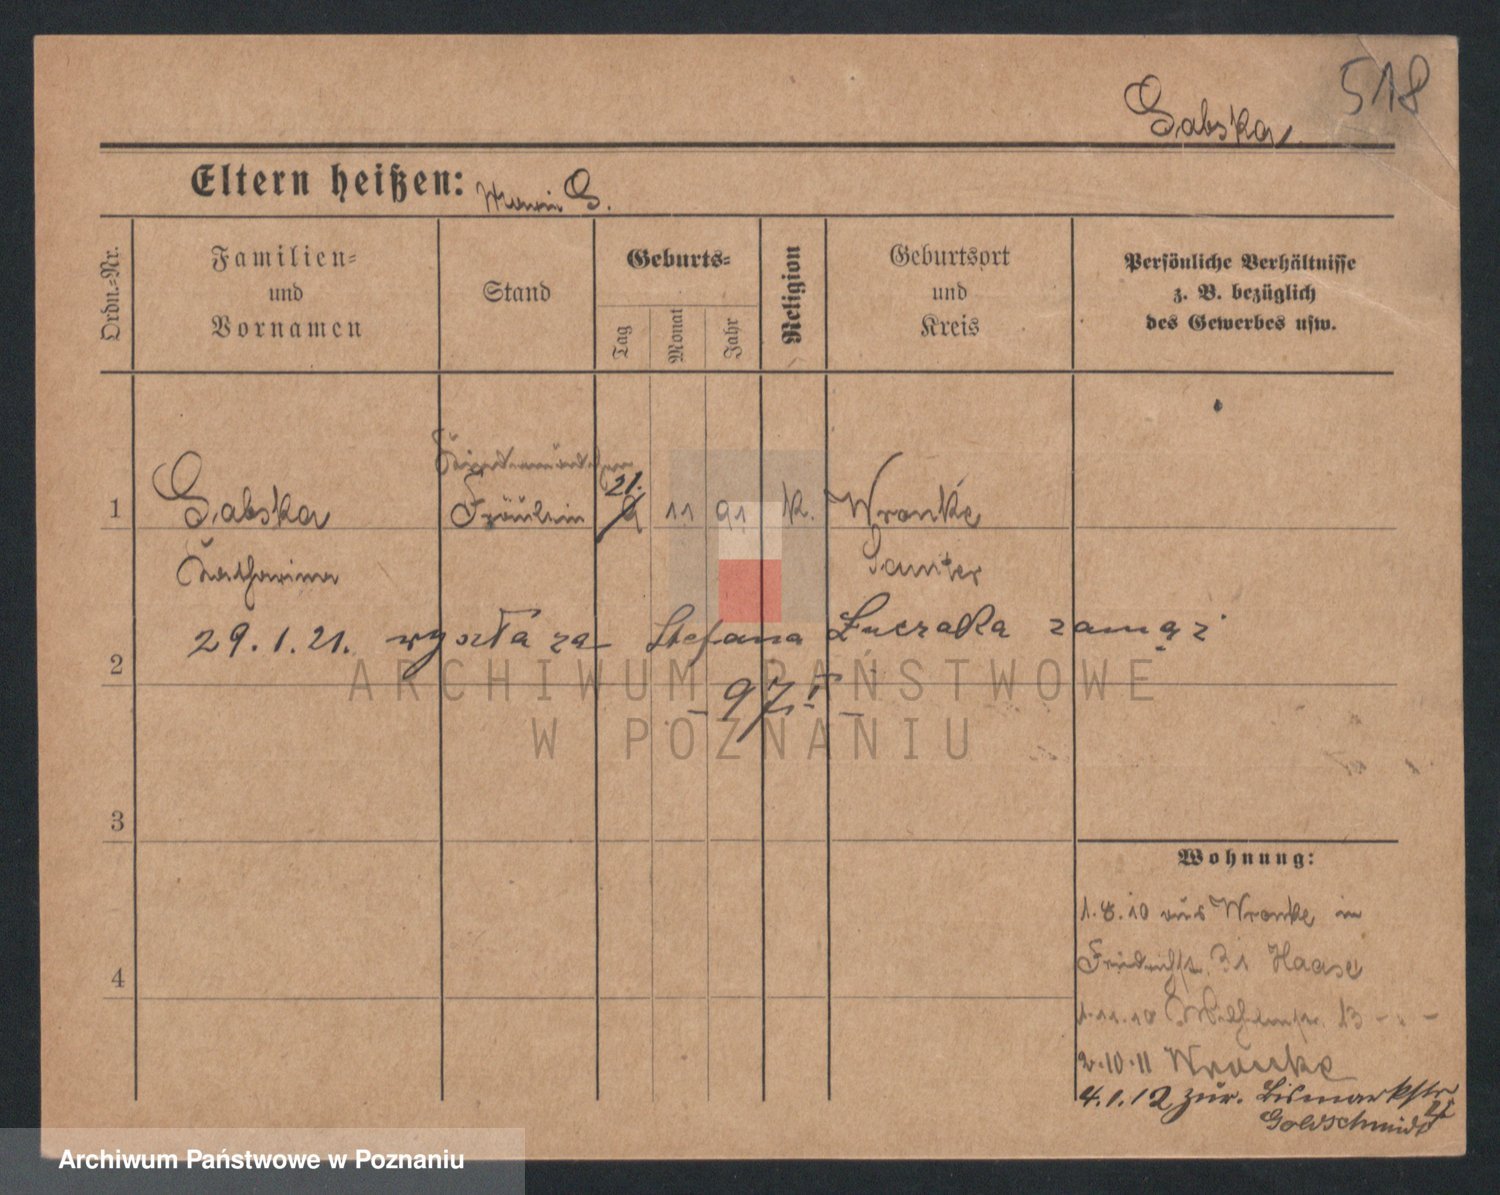 518
Gabska
Eltern heißen: G.
Ordn.=Nr.
Familien=
und
Vornamen
Stand
Geburts=
Tag
Monat
Jahr
Religion
Geburtsort
und
Kreis
Persönliche Verhältnisse
z. B. bezüglich
des Gewerbes usw.
21.
1 Gabska Fräulein 9 11 91 k. Wronke
Katharina Samter
29.1.21. wyszła za Stefana Łuczaka zamąż
2
3
4
Wohnung:
1.8.10 aus Wronke in
Friedrichstr. 31 Haase
1.11.10 Wilhelmstr. 13
2.10.11 Wronke
4.1.12 zur. Bismarkstr.
Goldschmidt
ARCHIWUM PAŃSTWOWE
W POZNANIU
Archiwum Państwowe w Poznaniu